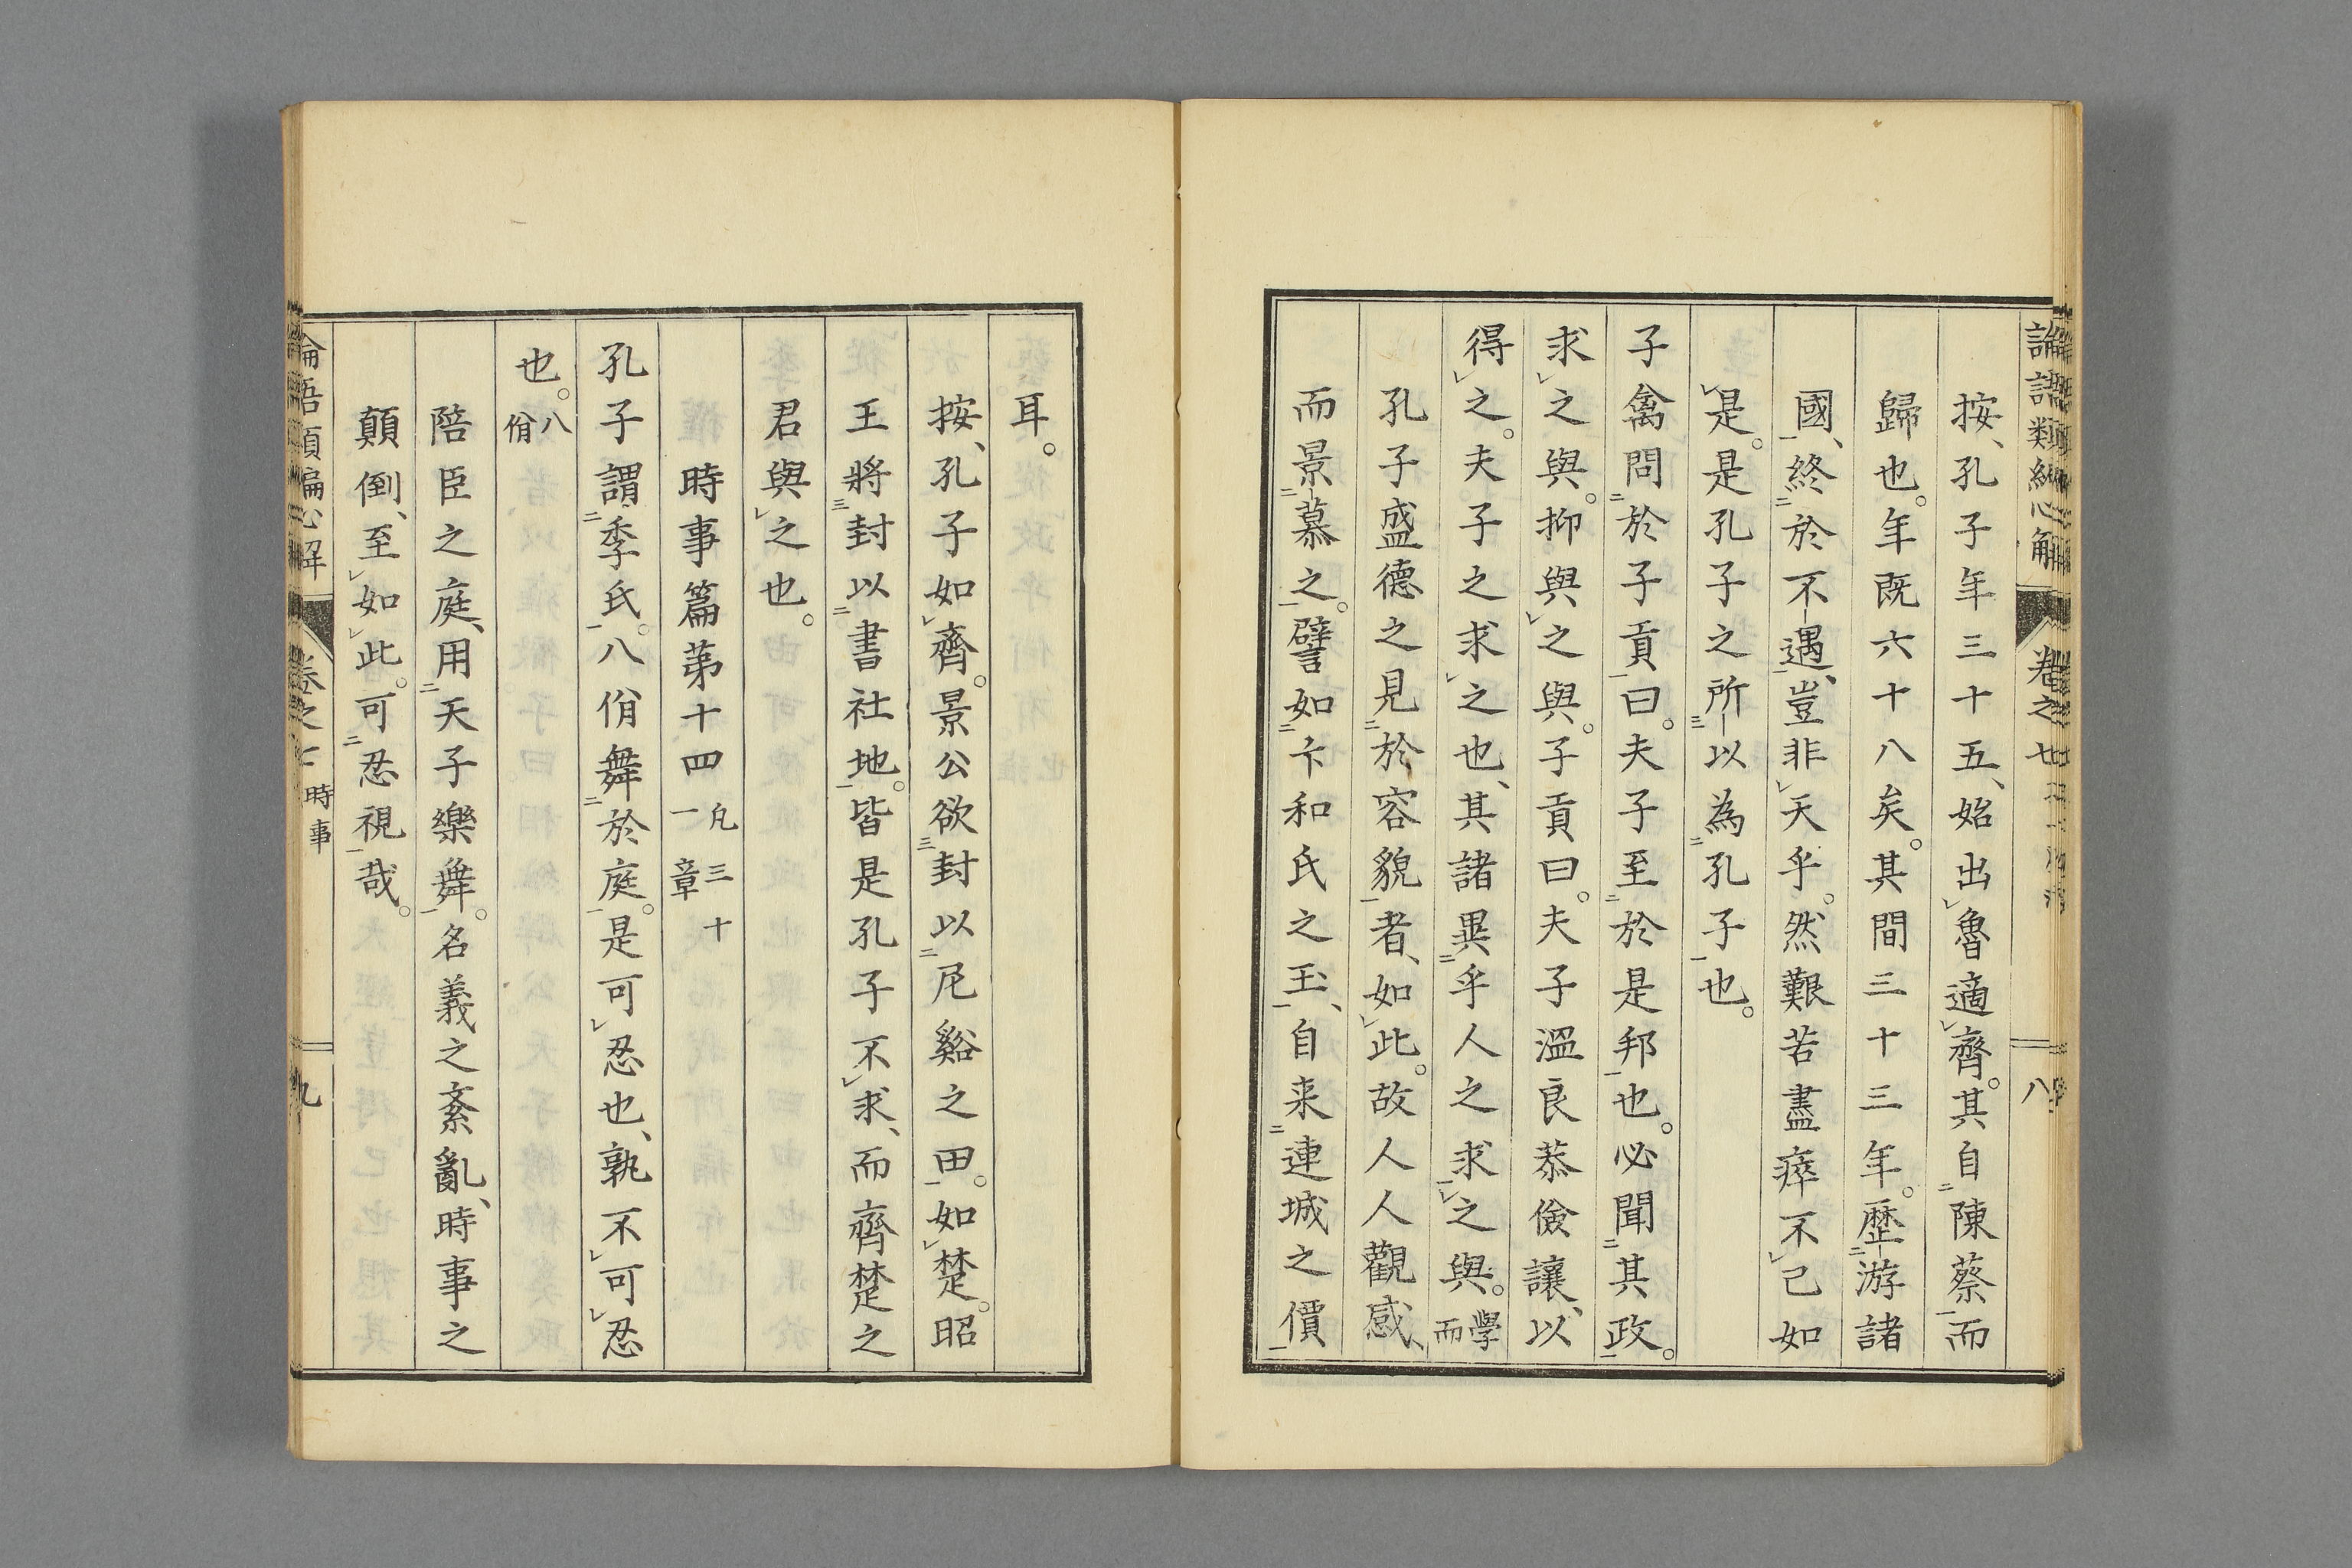 論語類編心解
卷之七
八
按、孔子年三十五、始出魯適齊。其自陳蔡而
歸也。年既六十八矣。其間三十三年。歷游諸
國、終於不遇、豈非天乎。然艱苦盡瘁不已如
是。是孔子之所以為孔子也。
子禽問於子貢曰。夫子至於是邦也。必聞其政。
求之與。抑與之與。子貢曰。夫子溫良恭儉讓、以
得之。夫子之求之也、其諸異乎人之求之與。學而
孔子盛德之見於容貌者、如此。故人人觀感、
而景慕之。譬如卞和氏之玉、自来連城之價
耳。
按、孔子如齊。景公欲封以尼谿之田。如楚。昭
王將封以書社地。皆是孔子不求、而齊楚之
君與之也。
時事篇第十四 凡三十一章
孔子謂季氏。八佾舞於庭。是可忍也、孰不可忍
也。八佾
陪臣之庭、用天子樂舞。名義之紊亂、時事之
顛倒、至如此。可忍視哉。
論語類編心解
卷之七
時事
九